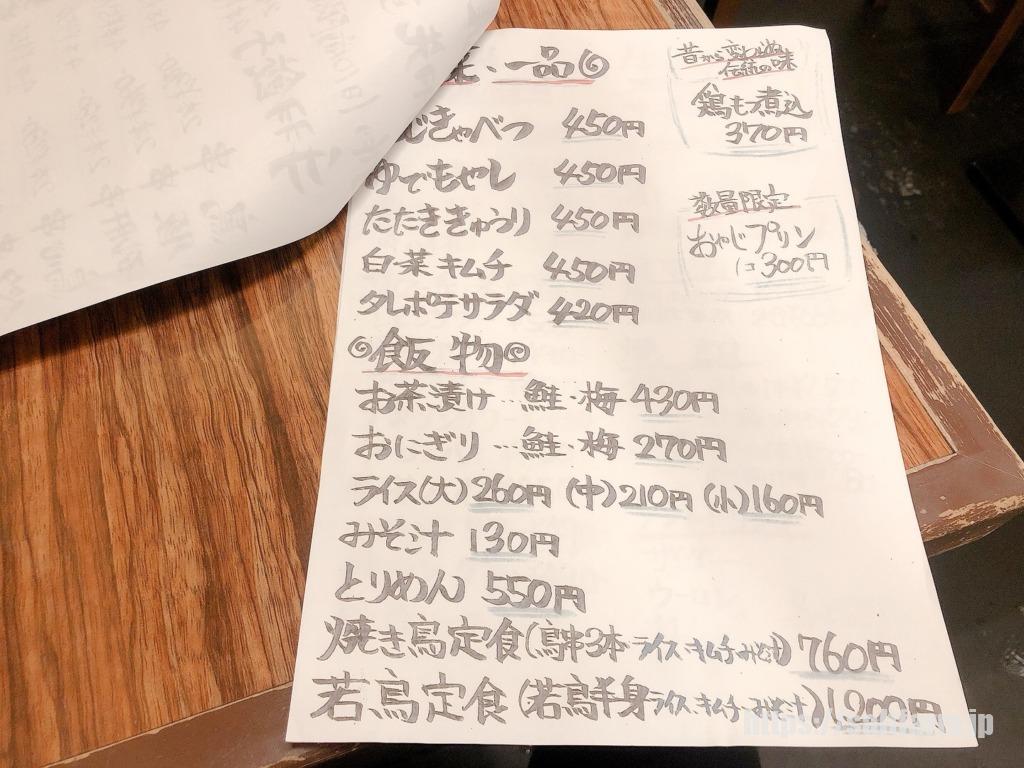 一品
じきゃべつ 450円
ゆでもやし 450円
たたききゅうり 450円
白菜キムチ 450円
タレポテサラダ 420円
飯物
お茶漬け…鮭・梅 430円
おにぎり…鮭・梅 270円
ライス(大)260円 (中)210円 (小)160円
みそ汁 130円
とりめん 550円
焼き鳥定食(鳥串3本・ライス・キムチ・みそ汁)760円
若鳥定食(若鳥半身ライス・キムチ・みそ汁)1,200円
昔から変わらぬ
伝統の味
鶏もつ煮込
370円
数量限定
おやじプリン
1コ300円